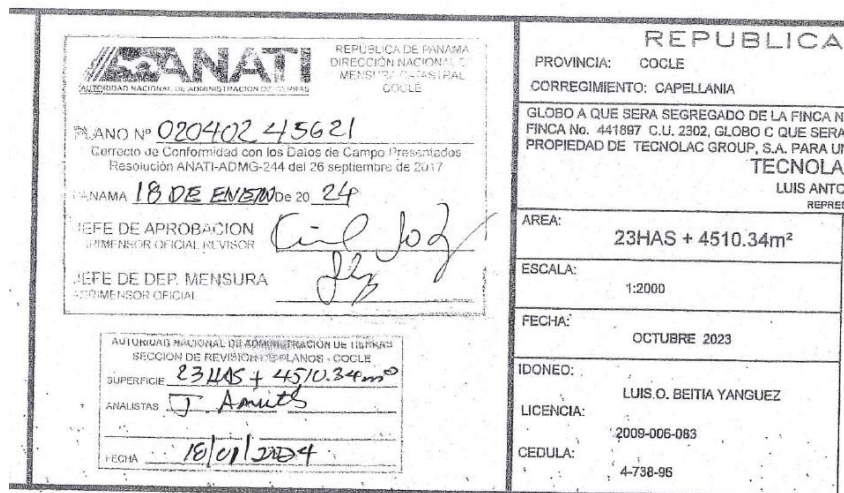 ANATI
AUTORIDAD NACIONAL DE ADMINISTRACION DE TIERRAS
REPÚBLICA DE PANAMA
DIRECCIÓN NACIONAL DE
MENSURA CATASTRAL
COCLÉ
PLANO Nº 020402 45621
Correcto de Conformidad con los Datos de Campo Presentados
Resolución ANATI-ADMG-244 del 26 septiembre de 2017
PANAMA 18 DE ENERO De 20 24
JEFE DE APROBACION
AGRIMENSOR OFICIAL REVISOR
JEFE DE DEP. MENSURA
AGRIMENSOR OFICIAL
AUTORIDAD NACIONAL DE ADMINISTRACION DE TIERRAS
SECCION DE REVISION DE PLANOS - COCLE
SUPERFICIE 23 HAS + 4510.34 m²
ANALISTAS J.
FECHA 18/01/2024
REPUBLICA
PROVINCIA: COCLE
CORREGIMIENTO: CAPELLANIA
GLOBO A QUE SERA SEGREGADO DE LA FINCA N
FINCA No. 441897 C.U. 2302, GLOBO C QUE SERA
PROPIEDAD DE TECNOLAC GROUP, S.A. PARA UN
TECNOLA
LUIS ANTO
REPRES
AREA:
23HAS + 4510.34m²
ESCALA:
1:2000
FECHA:
OCTUBRE 2023
IDONEO:
LUIS.O. BEITIA YANGUEZ
LICENCIA:
2009-006-063
CEDULA:
4-738-96